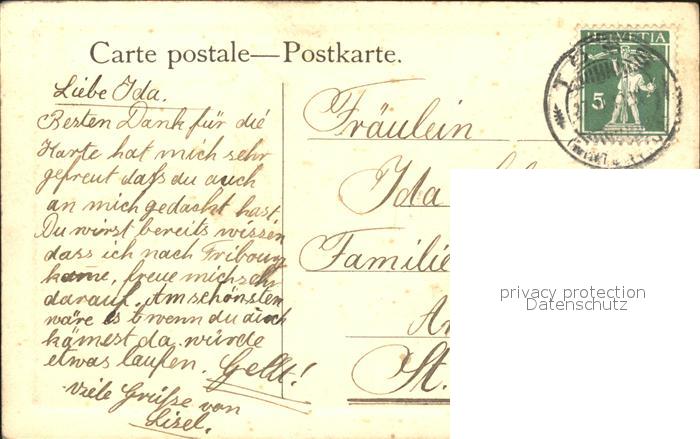 HELVETIA
5
Carte postale—Postkarte.
Liebe Ida.
Besten Dank für die
Karte hat mich sehr
gefreut dass du auch
an mich gedacht hast.
Du wirst bereits wissen
dass ich nach Fribourg
kame, freue mich sehr
darauf. Am schönsten
wäre es wenn du auch
kämest da würde
etwas laufen. Gellt!
Viele Grüsse von
Lisel.
Fräulein
Ida
Familie
St.
privacy protection
Datenschutz